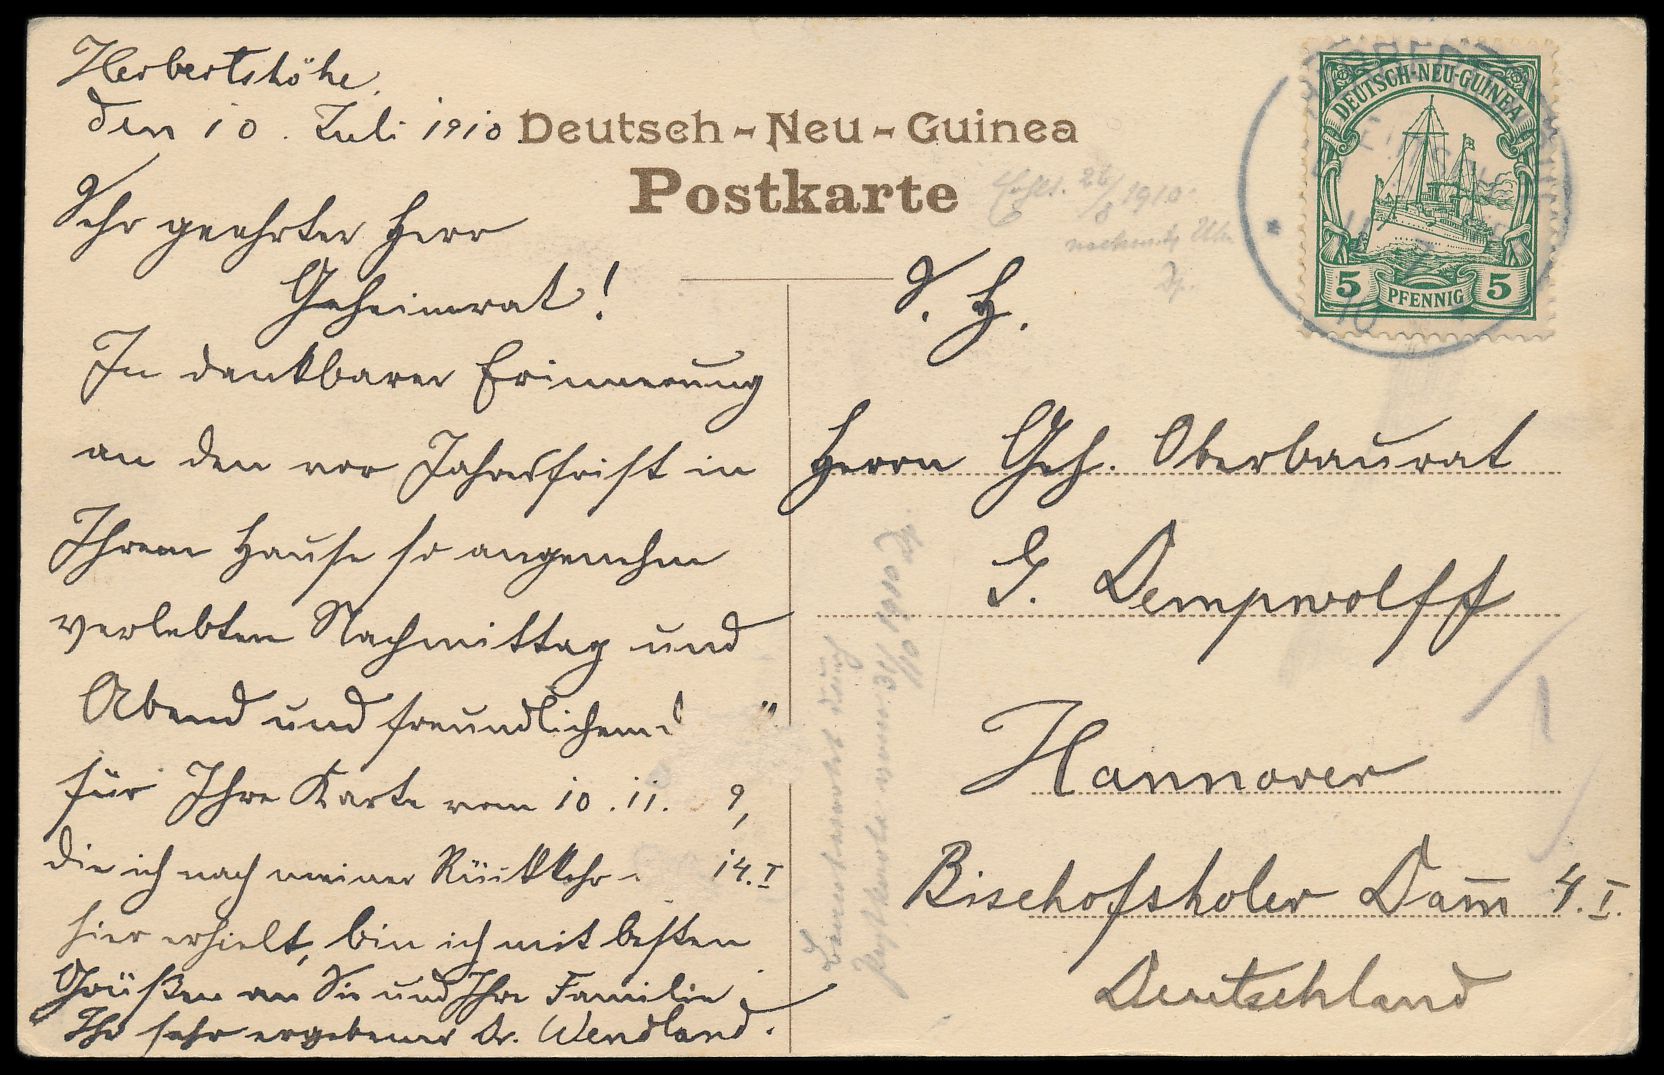 Herbertshöhe,
den 10. Juli 1910.
Deutsch-Neu-Guinea
Postkarte
Sehr geehrter Herr
Geheimrat!
In dankbarer Erinnerung
an den vor Jahresfrist in
Ihrem Hause so angenehm
verlebten Nachmittag und
Abend und freundlichem
für Ihre Karte vom 10. 11. 9,
die ich nach meiner Rückkehr 14. I
hier erhielt, bin ich mit besten
Grüßen an Sie und Ihre Familie
Ihr sehr ergebener Dr. Wendland.
Erhlt. 26/8 1910.
nachmittg Uhr
S. H.
Herrn Geh. Oberbaurat
G. Dempwolff
Hannover
Bischofsholer Dam̄ 4. I.
Deutschland
Beantwortet durch
Postkarte vom 31/10 1910
DEUTSCH-NEU-GUINEA
5 PFENNIG 5